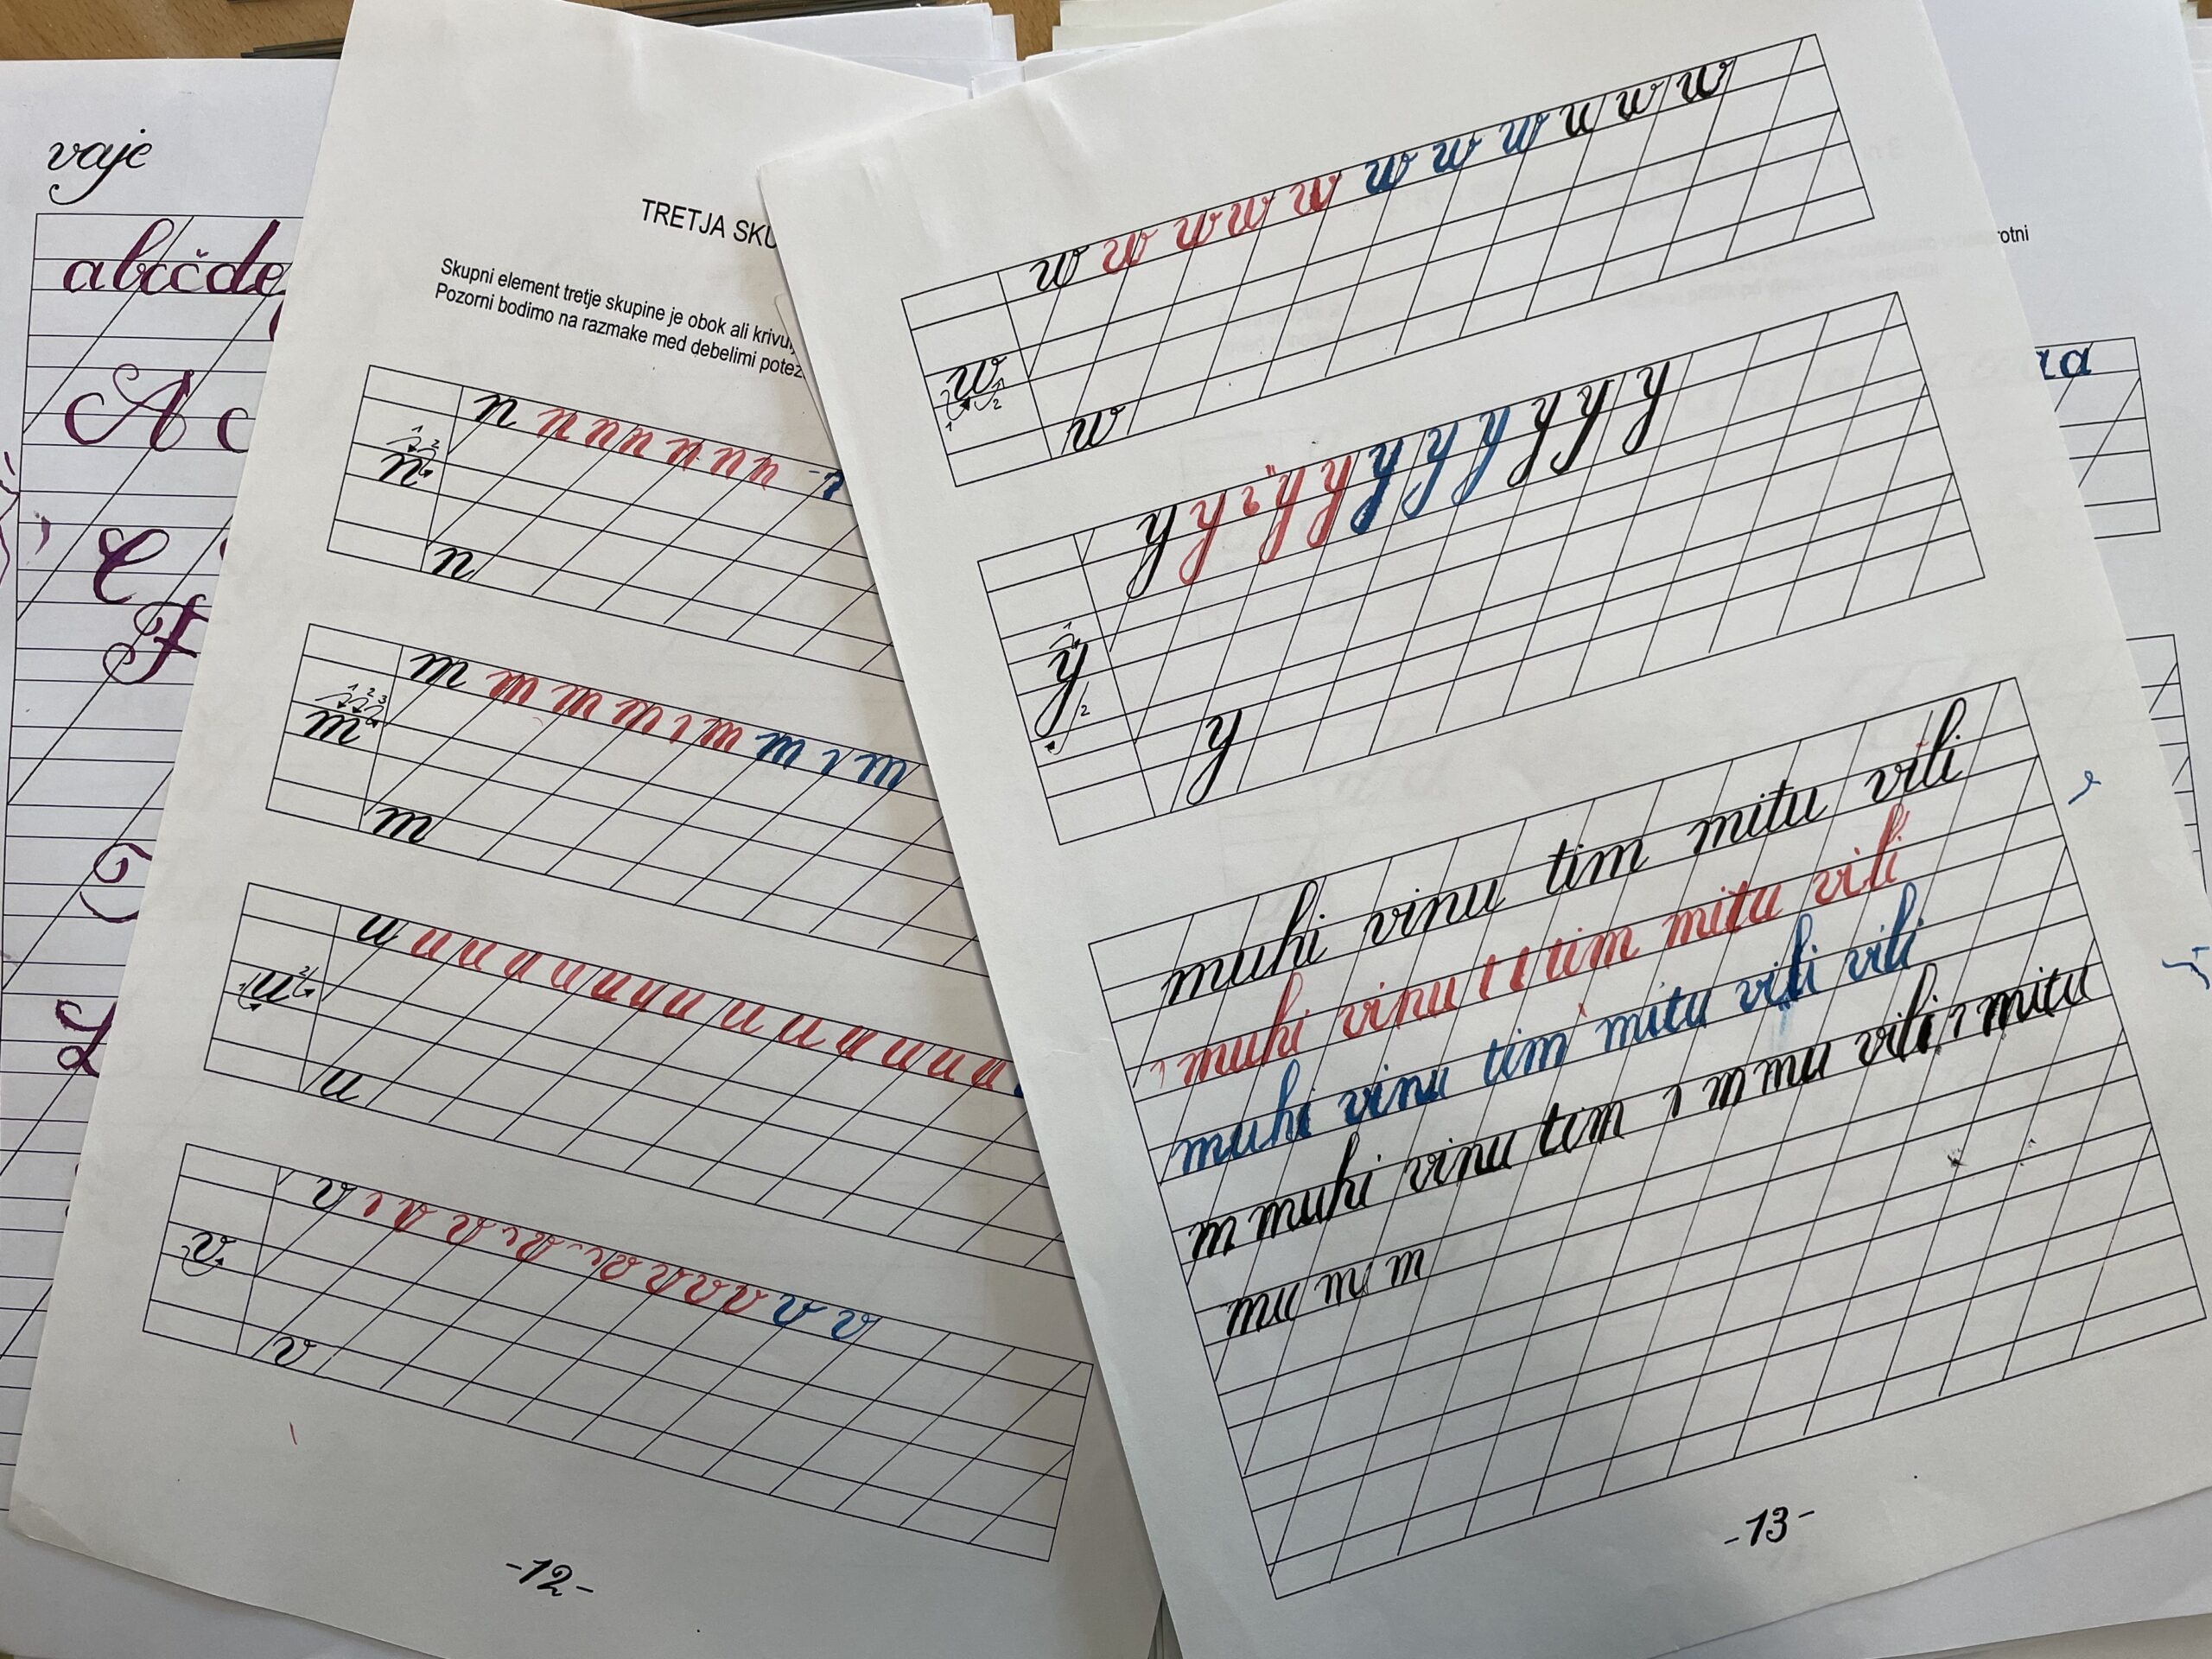 vaje
abcčde
A
C
F
L
TRETJA SKU
Skupni element tretje skupine je obok ali krivulj
Pozorni bodimo na razmake med debelimi potez
n n n n n n n n
1 2
n
n
m m m m m m m
1 2 3
m
m
u u u u u u u u u u u u u u u
1 2
u
u
v v v v v v v v v v
v
v
-12-
w w w w w w w w w w w
w
1 2
w
y y y y y y y y y y
1
y
2
y
muhi vinu tim mitu vili
muhi vinu tim mitu vili
muhi vinu tim mitu vili vili
m muhi vinu tim m mu vili mitu
mu m m
-13-
rotni
a